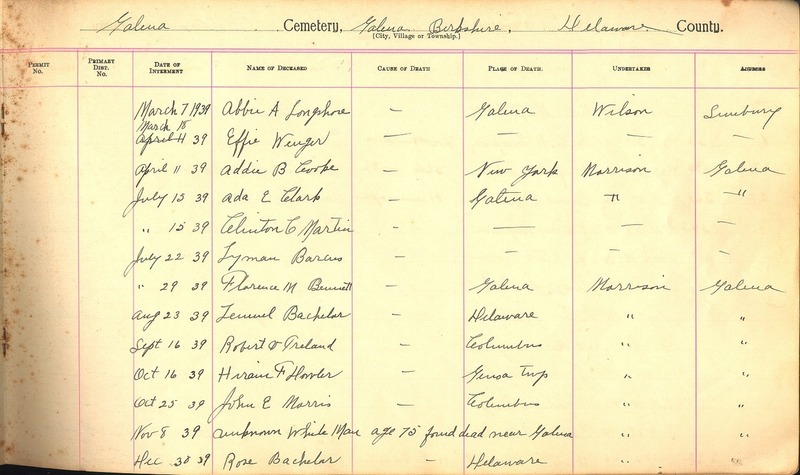 Galena Cemetery, Galena Berkshire, Delaware County.
(City, Village or Township.)
Permit No. Primary Dist. No. Date of Interment Name of Deceased Cause of Death Place of Death. Undertaker Address
March 7 1939 Abbie A Longshore — Galena Wilson Sunbury
March 18
April 11 39 Effie Wenger — — — —
April 11 39 Addie B Cooke — New York Morrison Galena
July 15 39 Ada E Clark — Galena " "
" 15 39 Clinton C Martin — — — —
July 22 39 Lyman Barcus — — — —
" 29 39 Florence M Bennett — Galena Morrison Galena
Aug 23 39 Lemuel Bachelar — Delaware " "
Sept 16 39 Robert Ireland — Columbus " "
Oct 16 39 Hiram F — Genoa Twp " "
Oct 25 39 John E Morris — Columbus " "
Nov 8 39 unknown White Man age 75 found dead near Galena " "
Dec 30 39 Rose Bachelar — Delaware " "